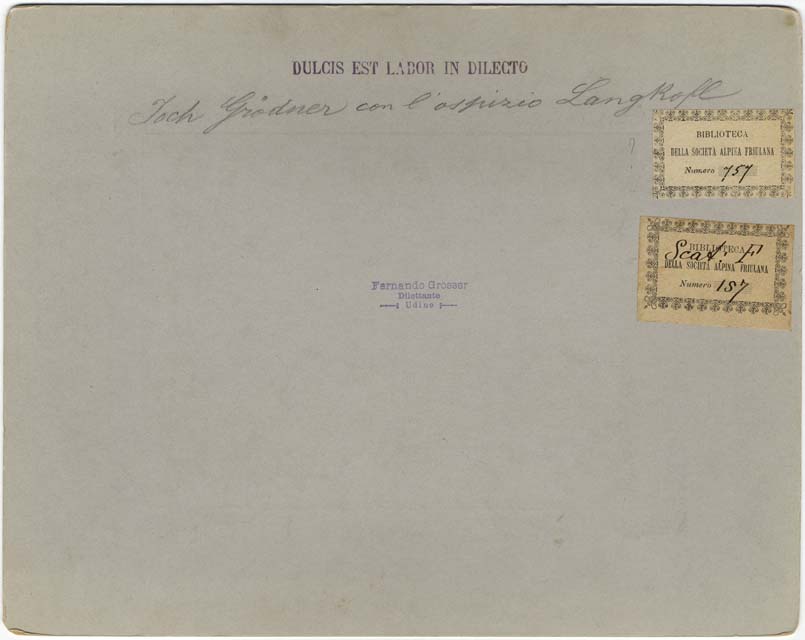 DULCIS EST LABOR IN DILECTO
Joch Grödner con l'ospizio Langkofl
BIBLIOTECA
DELLA SOCIETÀ ALPINA FRIULANA
Numero 757
BIBLIOTECA
Scat: F
DELLA SOCIETÀ ALPINA FRIULANA
Numero 157
Fernando Grosser
Dilettante
Udine